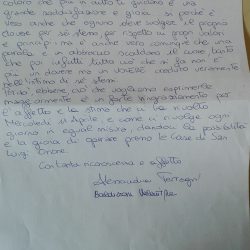 coloro che più in alto ti guidano è una
grande soddisfazione e gioia sì perché è
vero anche che ognuno deve svolgere il proprio
dovere per sé stesso, per rispetto ai propri valori
e principi ma è anche vero comunque che una
parola o un abbraccio scaldano il cuore tanto
che poi infatti tutto ciò che si fa non è
più un dovere ma un volere creduto veramente
nell'intimo di sé stessi.
ebbene ciò che vogliamo esprimere
maggiormente è un forte ringraziamento per
l'affetto e la stima che ci ha rivolto
Mercoledì 11 Aprile, e come ci rivolge ogni
giorno in egual misura, dandoci la possibilità
e la gioia di operare presso le Case di San
Luigi Orione.
Con tanta riconoscenza e affetto
Alessandra